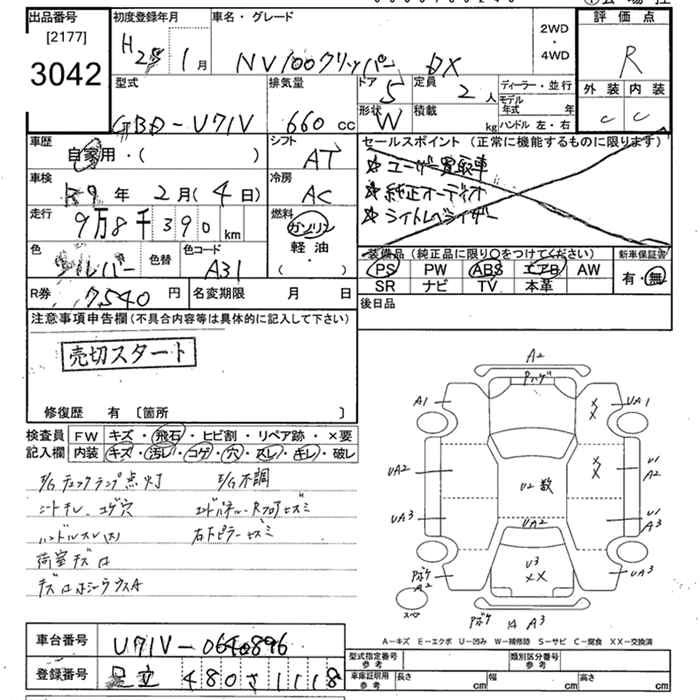 出品番号
[2177]
3042
初度登録年月
H25年 1月
車名・グレード
NV100クリッパー DX
2WD
・
4WD
評価点
R
外装 内装
C C
型式
GBD-U71V
排気量
660 cc
ドア
5
定員
2人
形状
W
積載
kg
ディーラー・並行
モデル年式 年
ハンドル 左・右
車歴
自家用・( )
シフト
AT
セールスポイント (正常に機能するものに限ります)
☆ユーザー買取車
☆純正オーディオ
☆ライトレベライザー
車検
R9年 2月(4日)
冷房
AC
走行
9万8千390km
燃料
ガソリン
軽油
・( )
色
シルバー
色替
色コード
A31
装備品 (純正品に限り○をつけてください)
PS PW ABS エアB AW
SR ナビ TV 本革
新車保証書
有・無
R券 7,540円
名変期限 月 日
後日品
注意事項申告欄 (不具合内容等は具体的に記入して下さい)
売切スタート
修復歴 有 〔箇所 〕
検査員記入欄
FW キズ・飛石・ヒビ割・リペア跡・×要
内装 キズ・汚レ・コゲ・穴・スレ・キレ・破レ
E/Gチェックランプ点灯 E/G不調
シートキレ、コゲ穴
ハンドルスレ(大)
荷室キズ
A2
A1
UA1
××
UA2
××
U1
A2
U2 数
UA3
UA2
U1
A3
U3
××
A2
UA3
A3
A-キズ E-エクボ U-凹み W-補修跡 S-サビ C-腐食 XX-交換済
車台番号
U71V-0640896
登録番号
足立 480 さ 1118
型式指定番号
参考
類別区分番号
参考
車庫証明用
参考
長さ cm
幅 cm
高さ cm